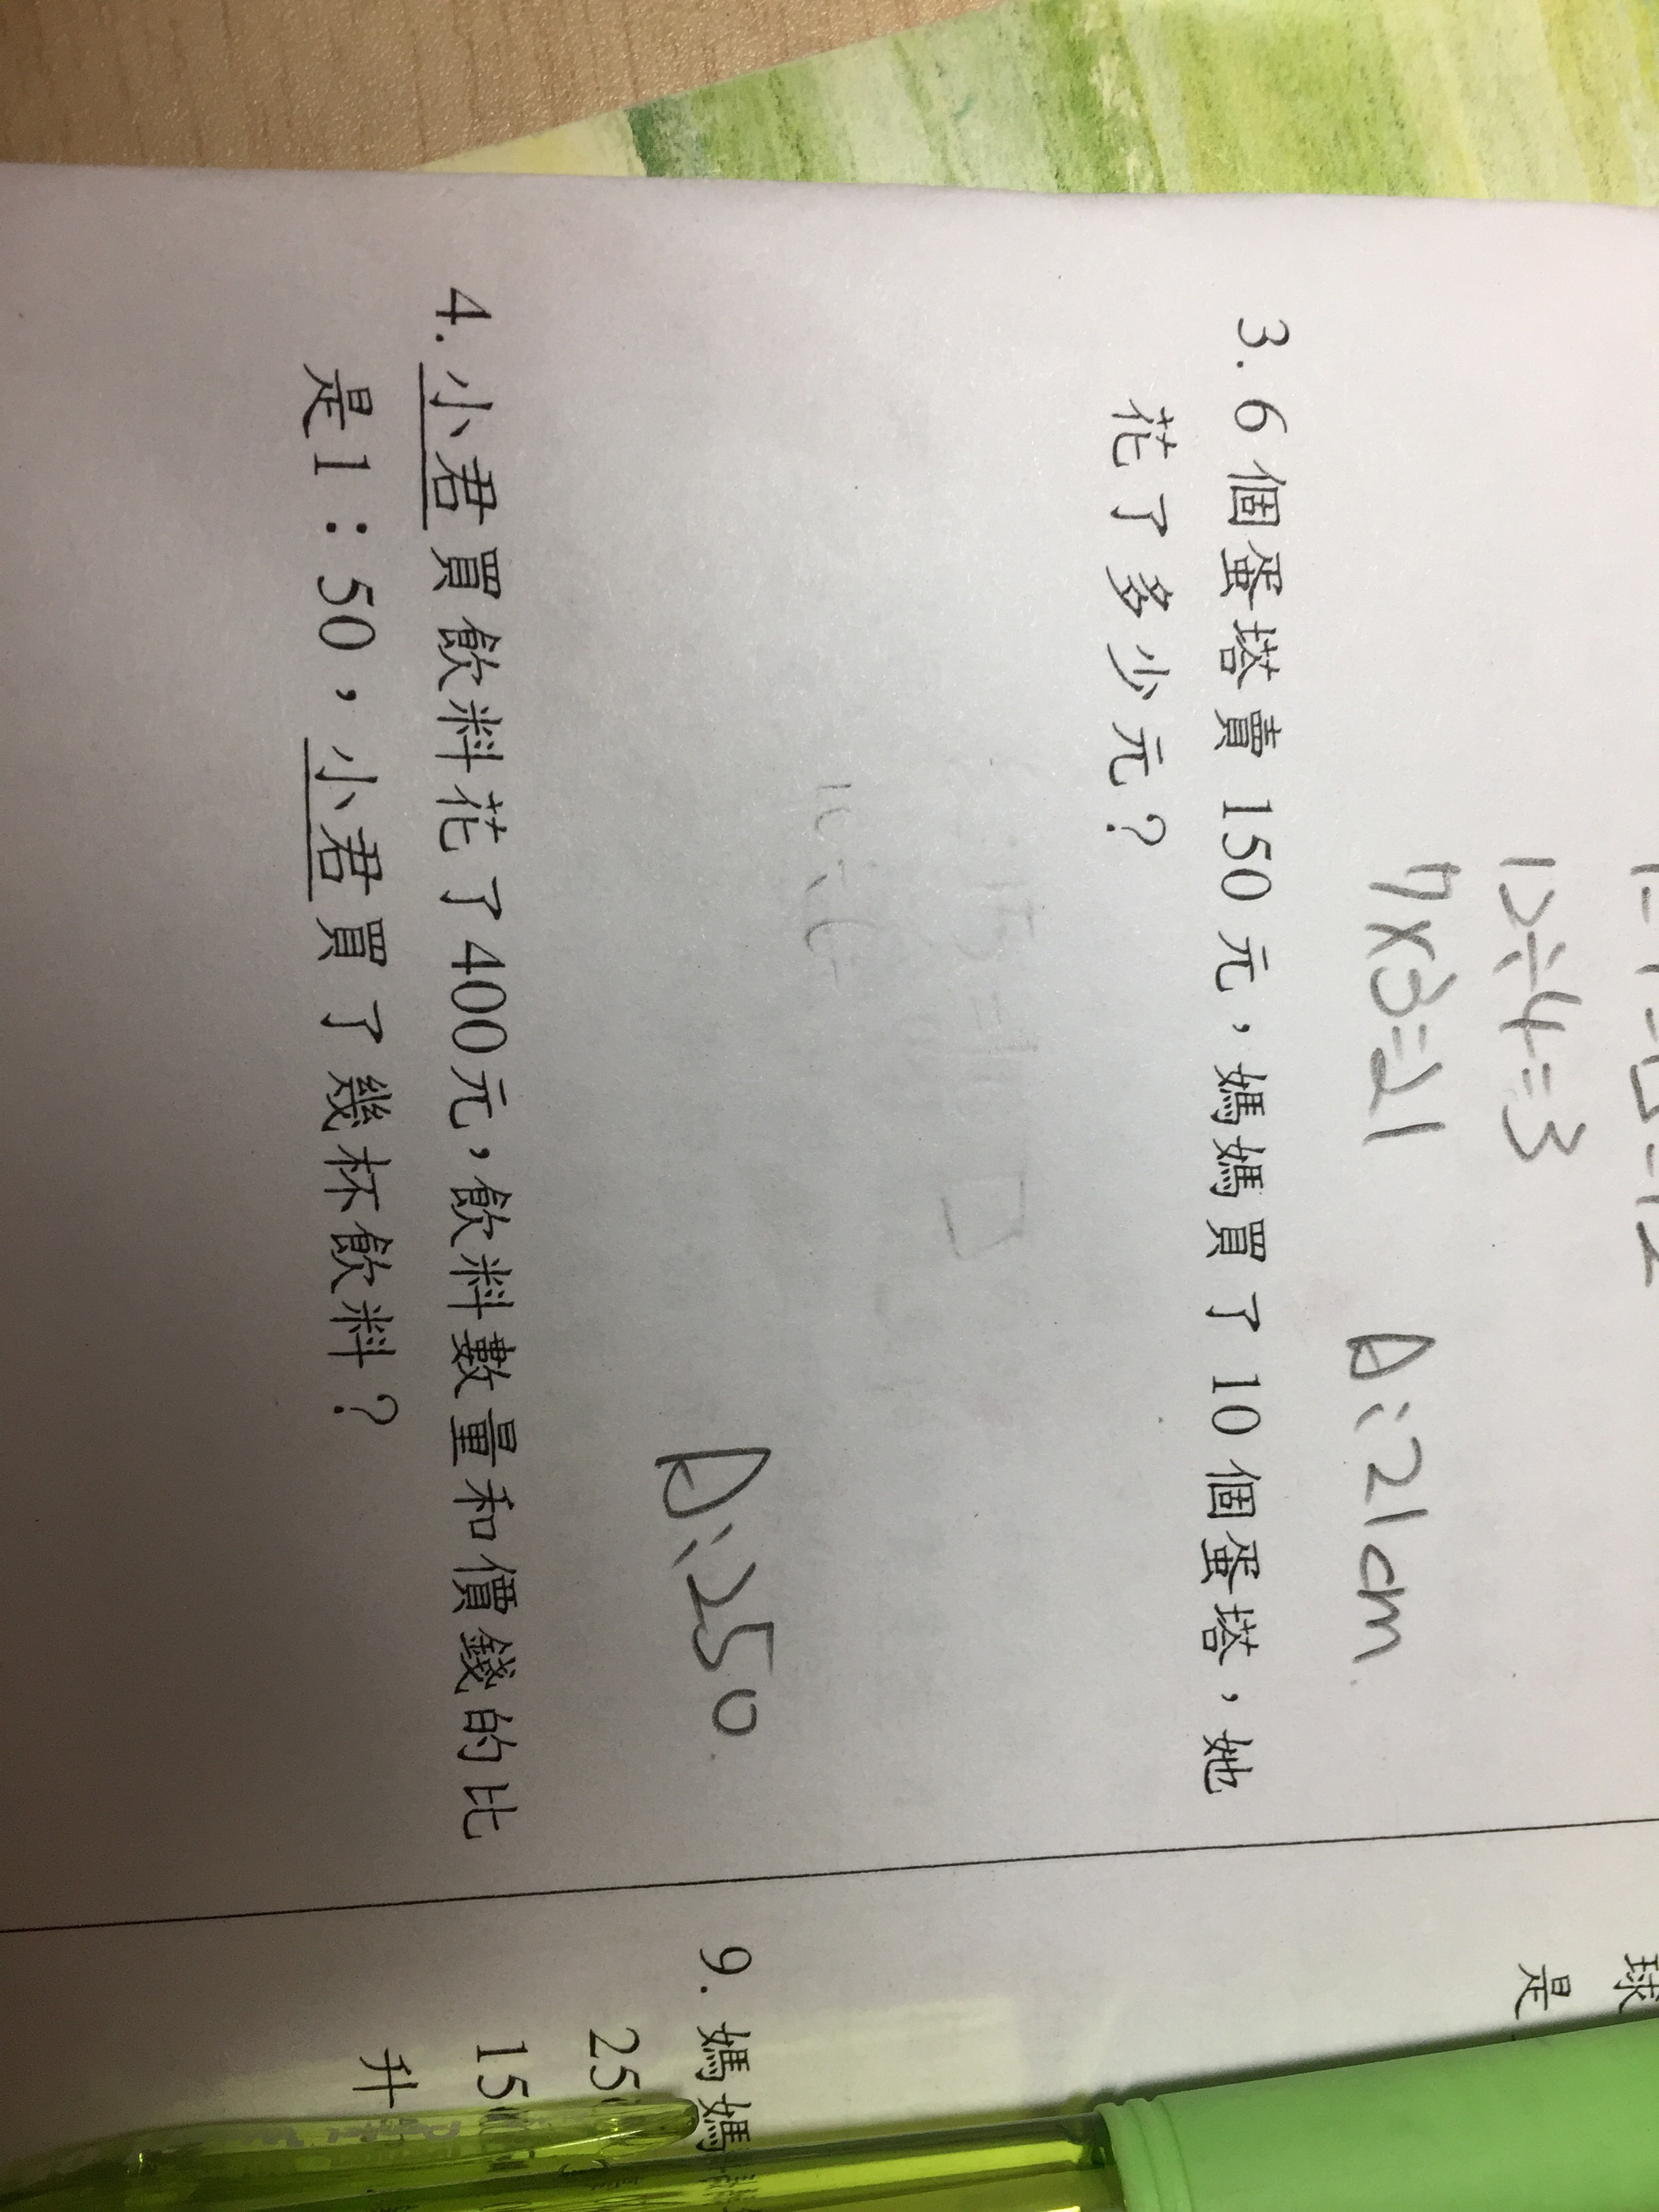 12÷4=3
7×3=21 A:21cm
3. 6個蛋塔賣150元，媽媽買了10個蛋塔，她
花了多少元？
A:250
4. 小君買飲料花了400元，飲料數量和價錢的比
是1：50，小君買了幾杯飲料？
球
是
9. 媽媽
25
15
升